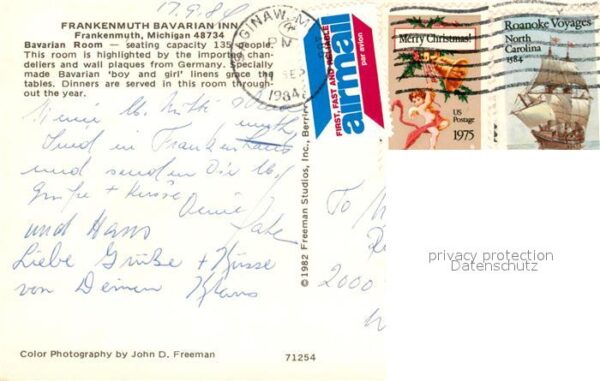 17.9.84
FRANKENMUTH BAVARIAN INN
Frankenmuth, Michigan 48734
Bavarian Room — seating capacity 135 people.
This room is highlighted by the imported chan-
deliers and wall plaques from Germany. Specially
made Bavarian 'boy and girl' linens grace the
tables. Dinners are served in this room through-
out the year.
SAGINAW, M
PM
SEP
1984
FIRST, FAST AND RELIABLE
airmail
par avion
Merry Christmas!
US
Postage
1975
Roanoke Voyages
North
Carolina
1584
Sind in Frankenhaus
und senden Dir lb.
Grüße + Küsse
Deine
und Hans
Liebe Grüße + Küsse
von Deinem Klaus
©1982 Freeman Studios, Inc., Berrie
To
2000
privacy protection
Datenschutz
Color Photography by John D. Freeman
71254